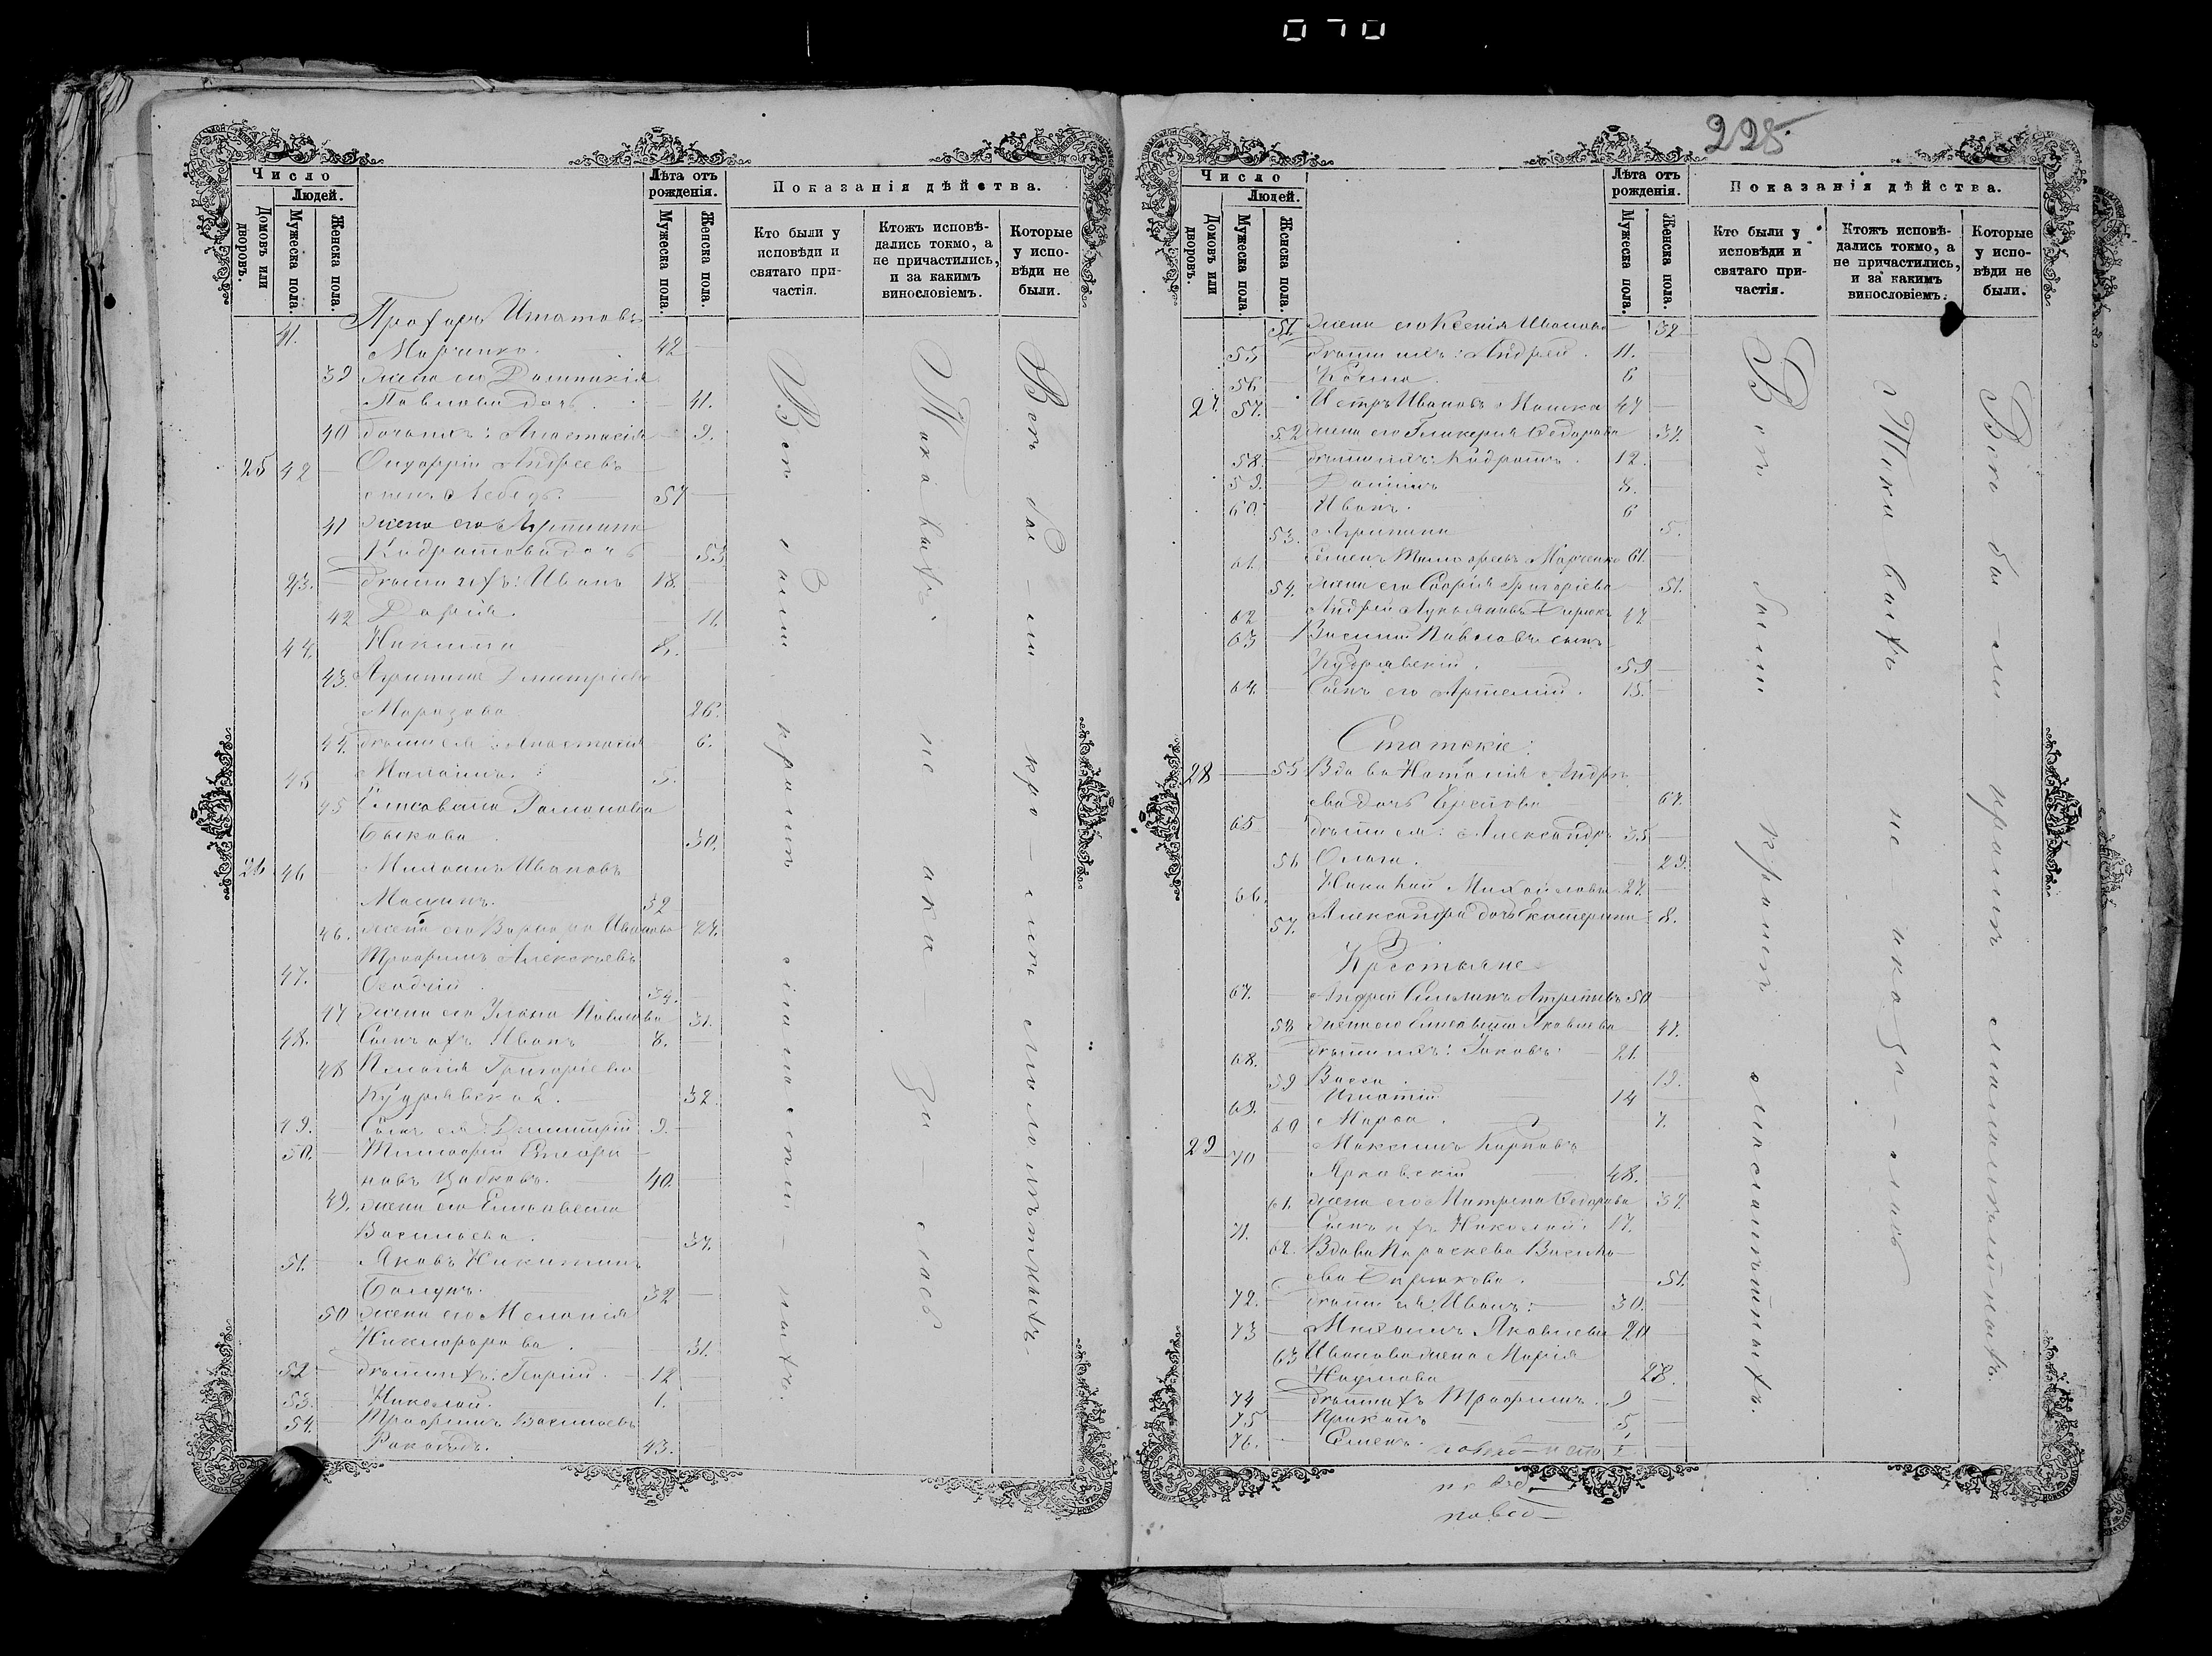 070
Число
Людей.
Домовъ или дворовъ.
Мужеска пола.
Женска пола.
Лѣта отъ рожденія.
Мужеска пола.
Женска пола.
Показанія дѣйства.
Кто были у исповѣди и святаго причастія.
Ктожъ исповѣдались токмо, а не причастились, и за какимъ винословіемъ.
Которые у исповѣди не были.
41. Прохоръ Игнатовъ
Марченко. 42
39 жена его Домникія
Павлова дочь. 41.
40 дочь ихъ: Анастасія 9.
25 42 Онуфрій Андреевъ
сынъ Лебедь. 57
41 жена его Агрипина
Кодратова дочь 53
43. дѣти ихъ: Иванъ 18.
42 Дарія. 11.
44. Никита 8.
43. Агрипина Димитріева
Морозова 26.
44. дѣти ея: Анастасія 6.
45 Михаилъ. 5.
45 Елисавета Романова
Быкова. 30.
26 46 Михаилъ Ивановъ
32
46. жена его Варвара Иванова 27.
47. Трофимъ Алексѣевъ
Осадчій. 34.
47 жена его Ульяна Павлова 31.
48. Сынъ ихъ Иванъ 8.
48 Пелагія Григоріева
Кудрявская. 32.
49. Сынъ ея: Димитрій 9.
50. Тимофей
40.
49. жена его Елисавета
Васильева. 37.
51. Яковъ Никитинъ
32
50 жена его Меланія
Никифорова. 31.
52 дѣти ихъ: Георгій. 12
53. Николай. 1.
54. Трофимъ Васильевъ
43.
Всѣ были кромѣ малолѣтнихъ.
Таковыхъ не оказалось
Всѣ были кромѣ малолѣтнихъ
225
Число
Людей.
Домовъ или дворовъ.
Мужеска пола.
Женска пола.
Лѣта отъ рожденія.
Мужеска пола.
Женска пола.
Показанія дѣйства.
Кто были у исповѣди и святаго причастія.
Ктожъ исповѣдались токмо, а не причастились, и за какимъ винословіемъ.
Которые у исповѣди не были.
51. жена его Ксенія Иванова 32
55 дѣти ихъ: Андрей. 11.
56 Косма. 6
27. 57. Петръ Ивановъ 47
52 жена его Гликерія Федорова 37.
58. дѣти ихъ: Кодратъ. 12.
59. 8.
60. Иванъ. 6
53. Агрипина 5.
61. Семенъ Тимофеевъ Марченко 61.
54. жена его Софія Григоріева 51.
62 Андрей Лукьяновъ 47
63 Василій Павловъ сынъ
Кудрявскій. 59
64. Сынъ его Артемій. 15.
Статскіе:
28 55 Вдова Наталія Андрѣ-
ева дочь 67.
65 дѣти ея: Александръ 35
56 Ольга. 29.
66. Николай Михайловъ 27.
57. Александра дочь Екатерина 8.
Крестьяне
67. Андрей 50
58 жена его Елисавета Яковлева 47.
68. дѣти ихъ: Іаковъ 21.
59 Васса. 19.
69. Игнатій 14
60 Марфа. 7.
29 70 Максимъ Карповъ
48.
61. жена его Матрена Федорова 37.
71. Сынъ ихъ Николай. 17.
62. Вдова Параскева Василь-
ева Бирюкова. 51.
72. дѣти ея: Иванъ: 30.
73 Михаилъ Яковлевъ 20
63 Иванова жена Марія
Наумова 28.
74 дѣти ихъ Трофимъ. 9
75 5
76. Семенъ. 1
Всѣ были кромѣ малолѣтнихъ.
Таковыхъ не оказалось
Всѣ были кромѣ малолѣтнихъ.